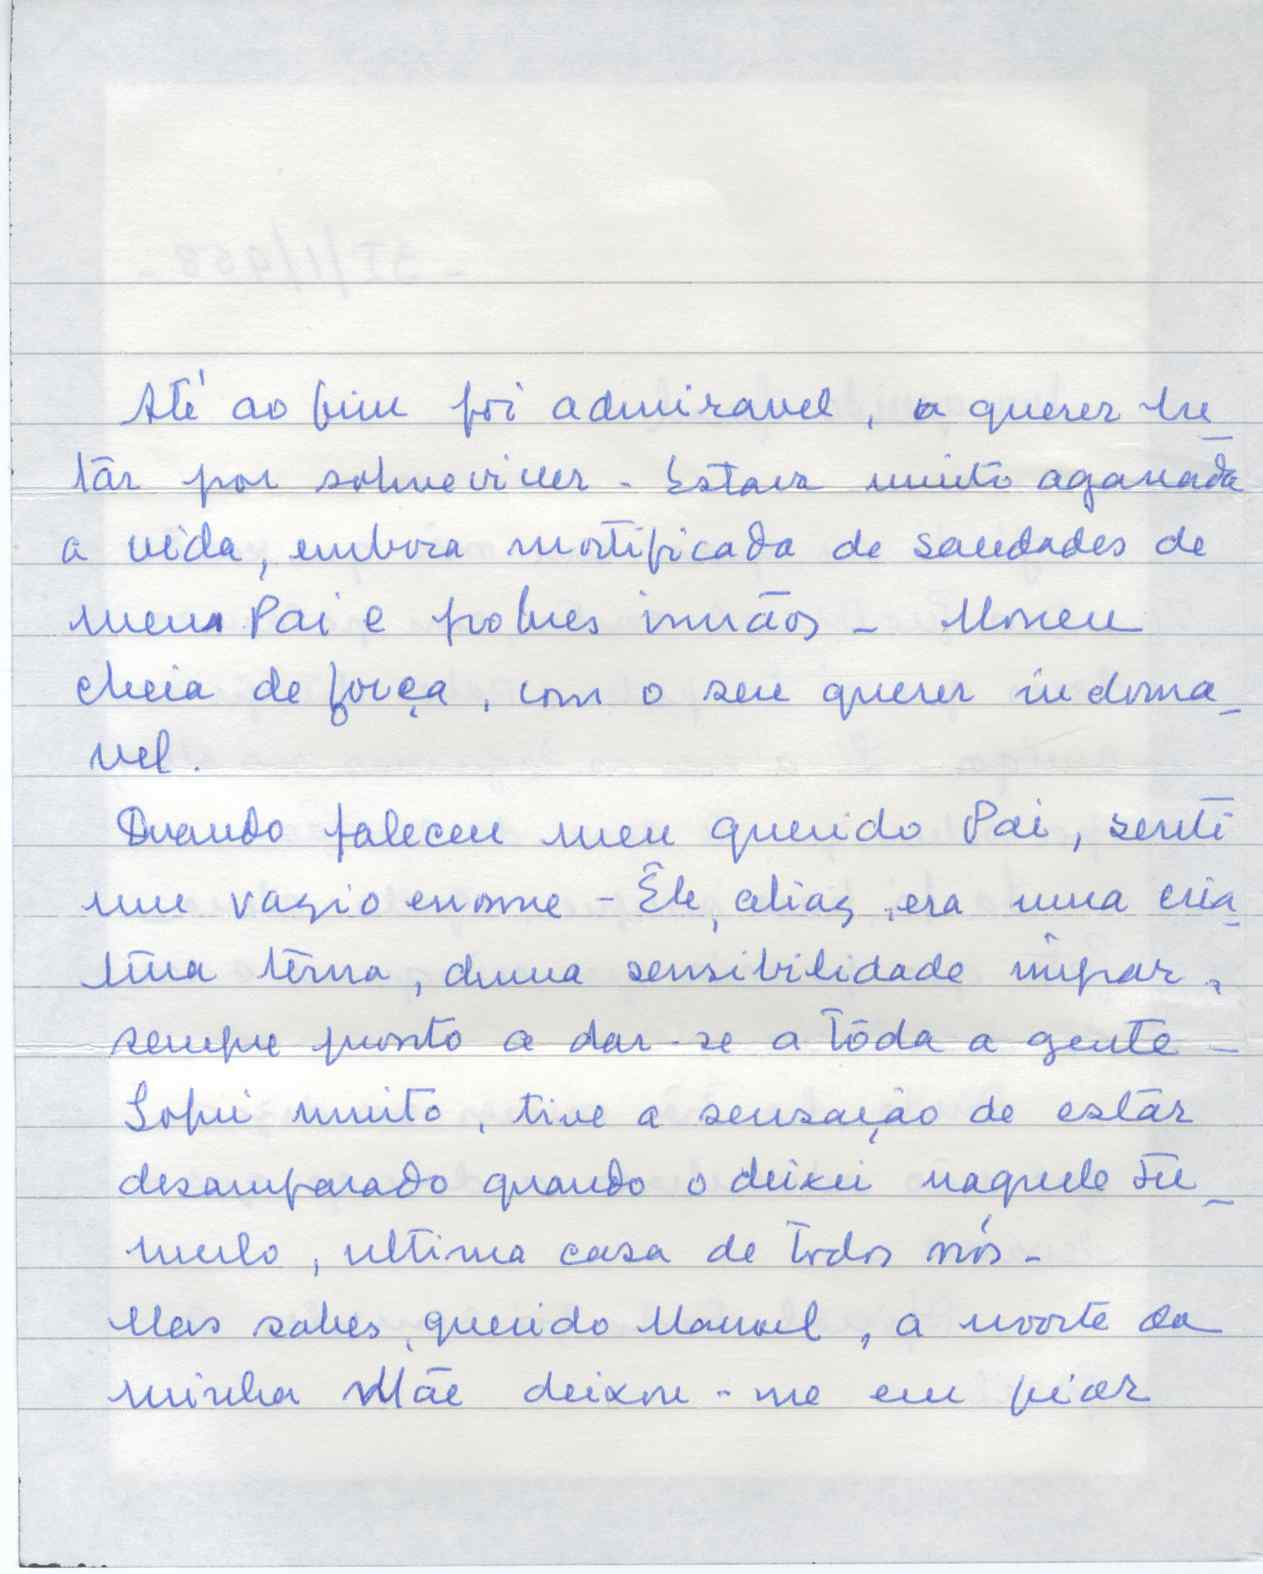 Até ao fim foi admiravel, a querer lu-
tar por sobreviver - Estava muito agarrada
a vida, embora mortificada de saudades de
meu Pai e pobres irmãos - Morreu
cheia de força, com o seu querer indoma-
vel.
Quando faleceu meu querido Pai, senti
um vazio enorme - Êle, alias, era uma cria-
tura terna, duma sensibilidade impar,
sempre pronto a dar-se a tôda a gente -
Sofri muito, tive a sensação de estar
desamparado quando o deixei naquele tu-
mulo, ultima casa de todos nós -
Mas sabes, querido Manuel, a morte da
minha Mãe deixou-me em pior